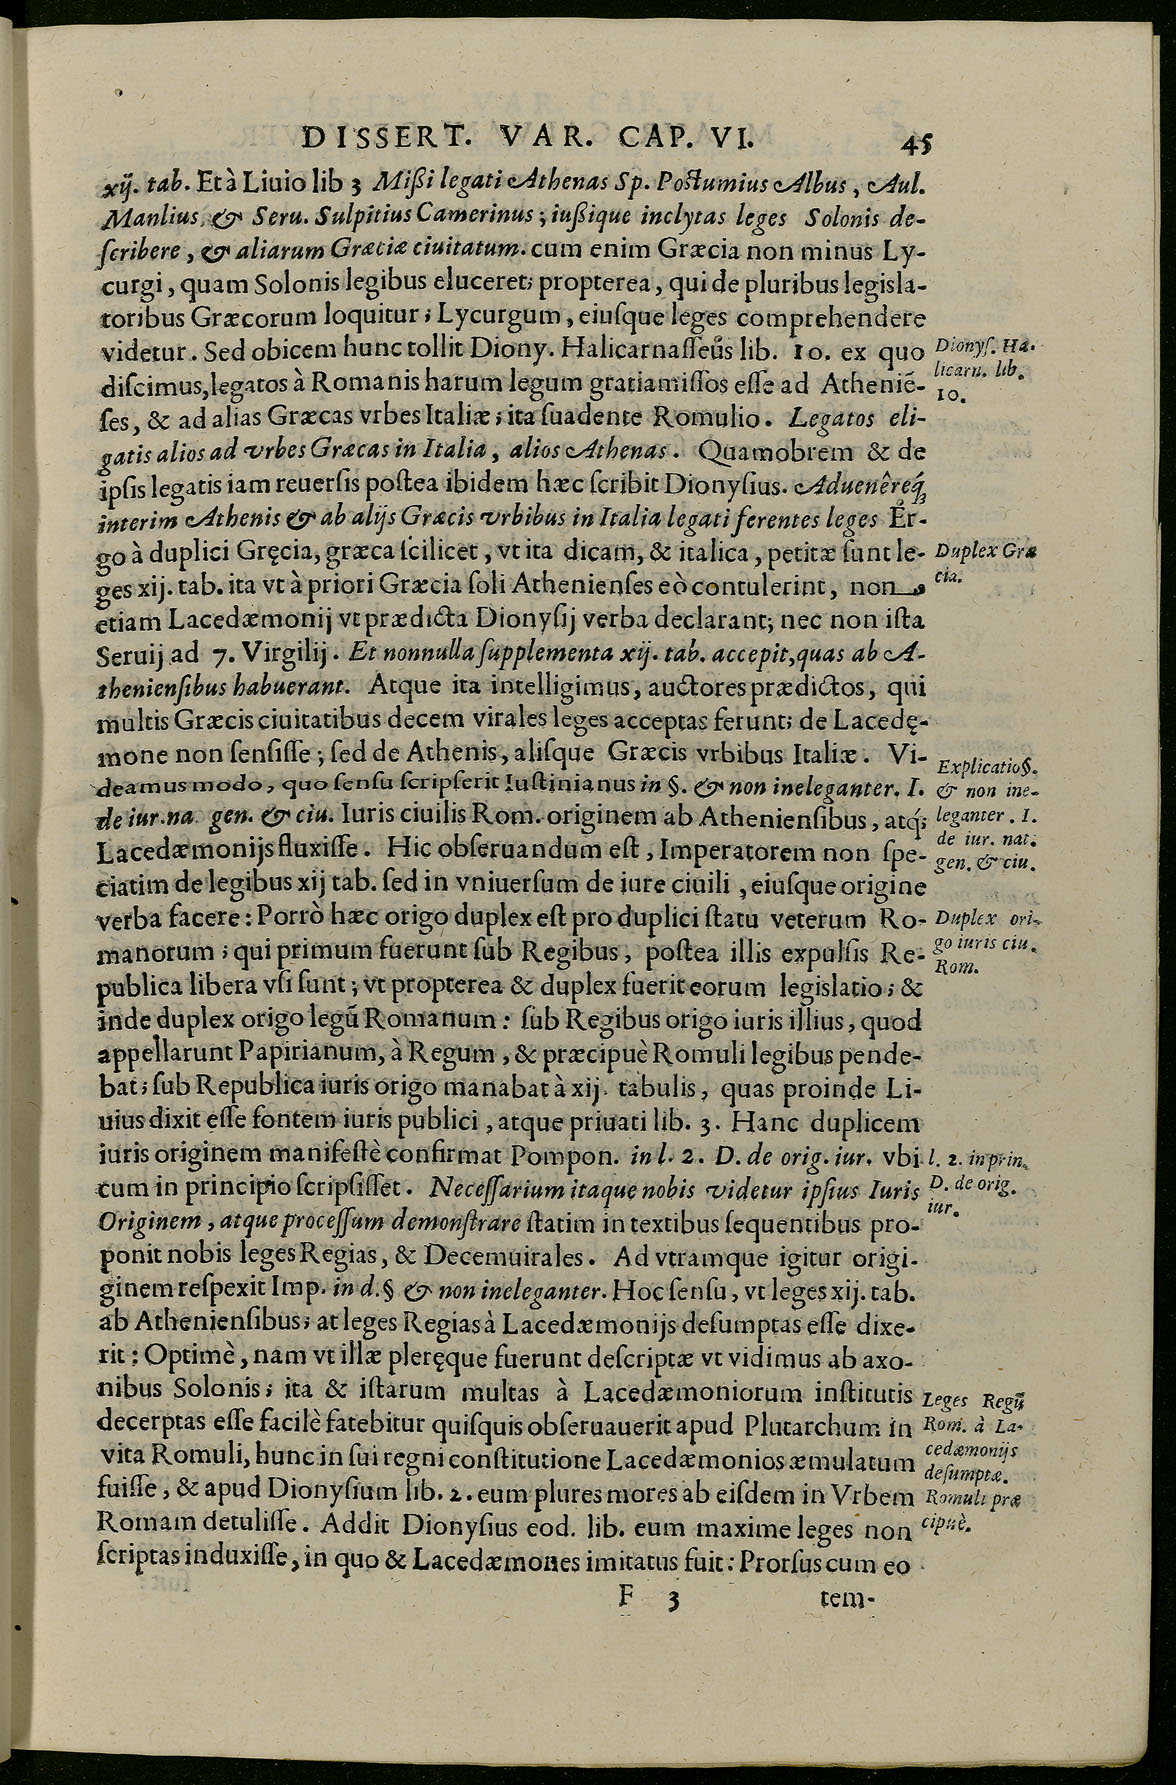 DISSERT. VAR. CAP. VI. 45
xij. tab. Et à Liuio lib 3 Mißi legati Athenas Sp. Postumius Albus, Aul.
Manlius, & Seru. Sulpitius Camerinus; iußique inclytas leges Solonis de-
ſcribere, & aliarum Græciæ ciuitatum. cum enim Græcia non minus Ly-
curgi, quam Solonis legibus eluceret; propterea, qui de pluribus legisla-
toribus Græcorum loquitur; Lycurgum, eiuſque leges comprehendere
videtur. Sed obicem hunc tollit Diony. Halicarnaſſeûs lib. 10. ex quo
diſcimus, legatos à Romanis harum legum gratia miſſos eſſe ad Atheniē-
ſes, & ad alias Græcas vrbes Italiæ; ita ſuadente Romulio. Legatos eli-
gatis alios ad vrbes Græcas in Italia, alios Athenas. Quamobrem & de
ipſis legatis iam reuerſis poſtea ibidem hæc ſcribit Dionyſius. Aduenêreq́;
interim Athenis & ab alijs Græcis vrbibus in Italia legati ferentes leges Er-
go à duplici Gręcia, græca ſcilicet, vt ita dicam, & italica, petitæ ſunt le-
ges xij. tab. ita vt à priori Græcia ſoli Athenienſes eò contulerint, non
etiam Lacedæmonij vt prædicta Dionyſij verba declarant; nec non iſta
Seruij ad 7. Virgilij. Et nonnulla ſupplementa xij. tab. accepit, quas ab A-
thenienſibus habuerant. Atque ita intelligimus, auctores prædictos, qui
multis Græcis ciuitatibus decem virales leges acceptas ferunt; de Lacedę-
mone non ſenſiſſe; ſed de Athenis, aliſque Græcis vrbibus Italiæ. Vi-
deamus modo, quo ſenſu ſcripſerit Iuſtinianus in §. & non ineleganter. I.
de iur. na. gen. & ciu. Iuris ciuilis Rom. originem ab Athenienſibus, atq́;
Lacedæmonijs fluxiſſe. Hic obſeruandum eſt, Imperatorem non ſpe-
ciatim de legibus xij tab. ſed in vniuerſum de iure ciuili, eiuſque origine
verba facere: Porrò hæc origo duplex eſt pro duplici ſtatu veterum Ro-
manorum; qui primum fuerunt ſub Regibus, poſtea illis expulſis Re-
publica libera vſi ſunt; vt propterea & duplex fuerit eorum legislatio; &
inde duplex origo legū Romanum: ſub Regibus origo iuris illius, quod
appellarunt Papirianum, à Regum, & præcipuè Romuli legibus pende-
bat; ſub Republica iuris origo manabat à xij. tabulis, quas proinde Li-
uius dixit eſſe fontem iuris publici, atque priuati lib. 3. Hanc duplicem
iuris originem manifeſtè confirmat Pompon. in l. 2. D. de orig. iur. vbi
cum in principio ſcripſiſſet. Neceſſarium itaque nobis videtur ipſius Iuris
Originem, atque proceſſum demonſtrare ſtatim in textibus ſequentibus pro-
ponit nobis leges Regias, & Decemuirales. Ad vtramque igitur origi-
ginem reſpexit Imp. in d. § & non ineleganter. Hoc ſenſu, vt leges xij. tab.
ab Athenienſibus; at leges Regias à Lacedæmonijs deſumptas eſſe dixe-
rit: Optimè, nam vt illæ pleręque fuerunt deſcriptæ vt vidimus ab axo-
nibus Solonis; ita & iſtarum multas à Lacedæmoniorum inſtitutis
decerptas eſſe facilè fatebitur quiſquis obſeruauerit apud Plutarchum in
vita Romuli, hunc in ſui regni conſtitutione Lacedæmonios æmulatum
fuiſſe, & apud Dionyſium lib. 2. eum plures mores ab eiſdem in Vrbem
Romam detuliſſe. Addit Dionyſius eod. lib. eum maxime leges non
ſcriptas induxiſſe, in quo & Lacedæmones imitatus fuit: Prorſus cum eo
F 3 tem-
Dionyſ. Ha-
licarn. lib.
10.
Duplex Græ
cia.
Explicatio §.
& non ine-
leganter. I.
de iur. nat.
gen. & ciu.
Duplex ori-
go iuris ciu.
Rom.
l. 2. in prin.
D. de orig.
iur.
Leges Regū
Rom. à La-
cedæmonijs
deſumptæ.
Romuli præ
cipuè.